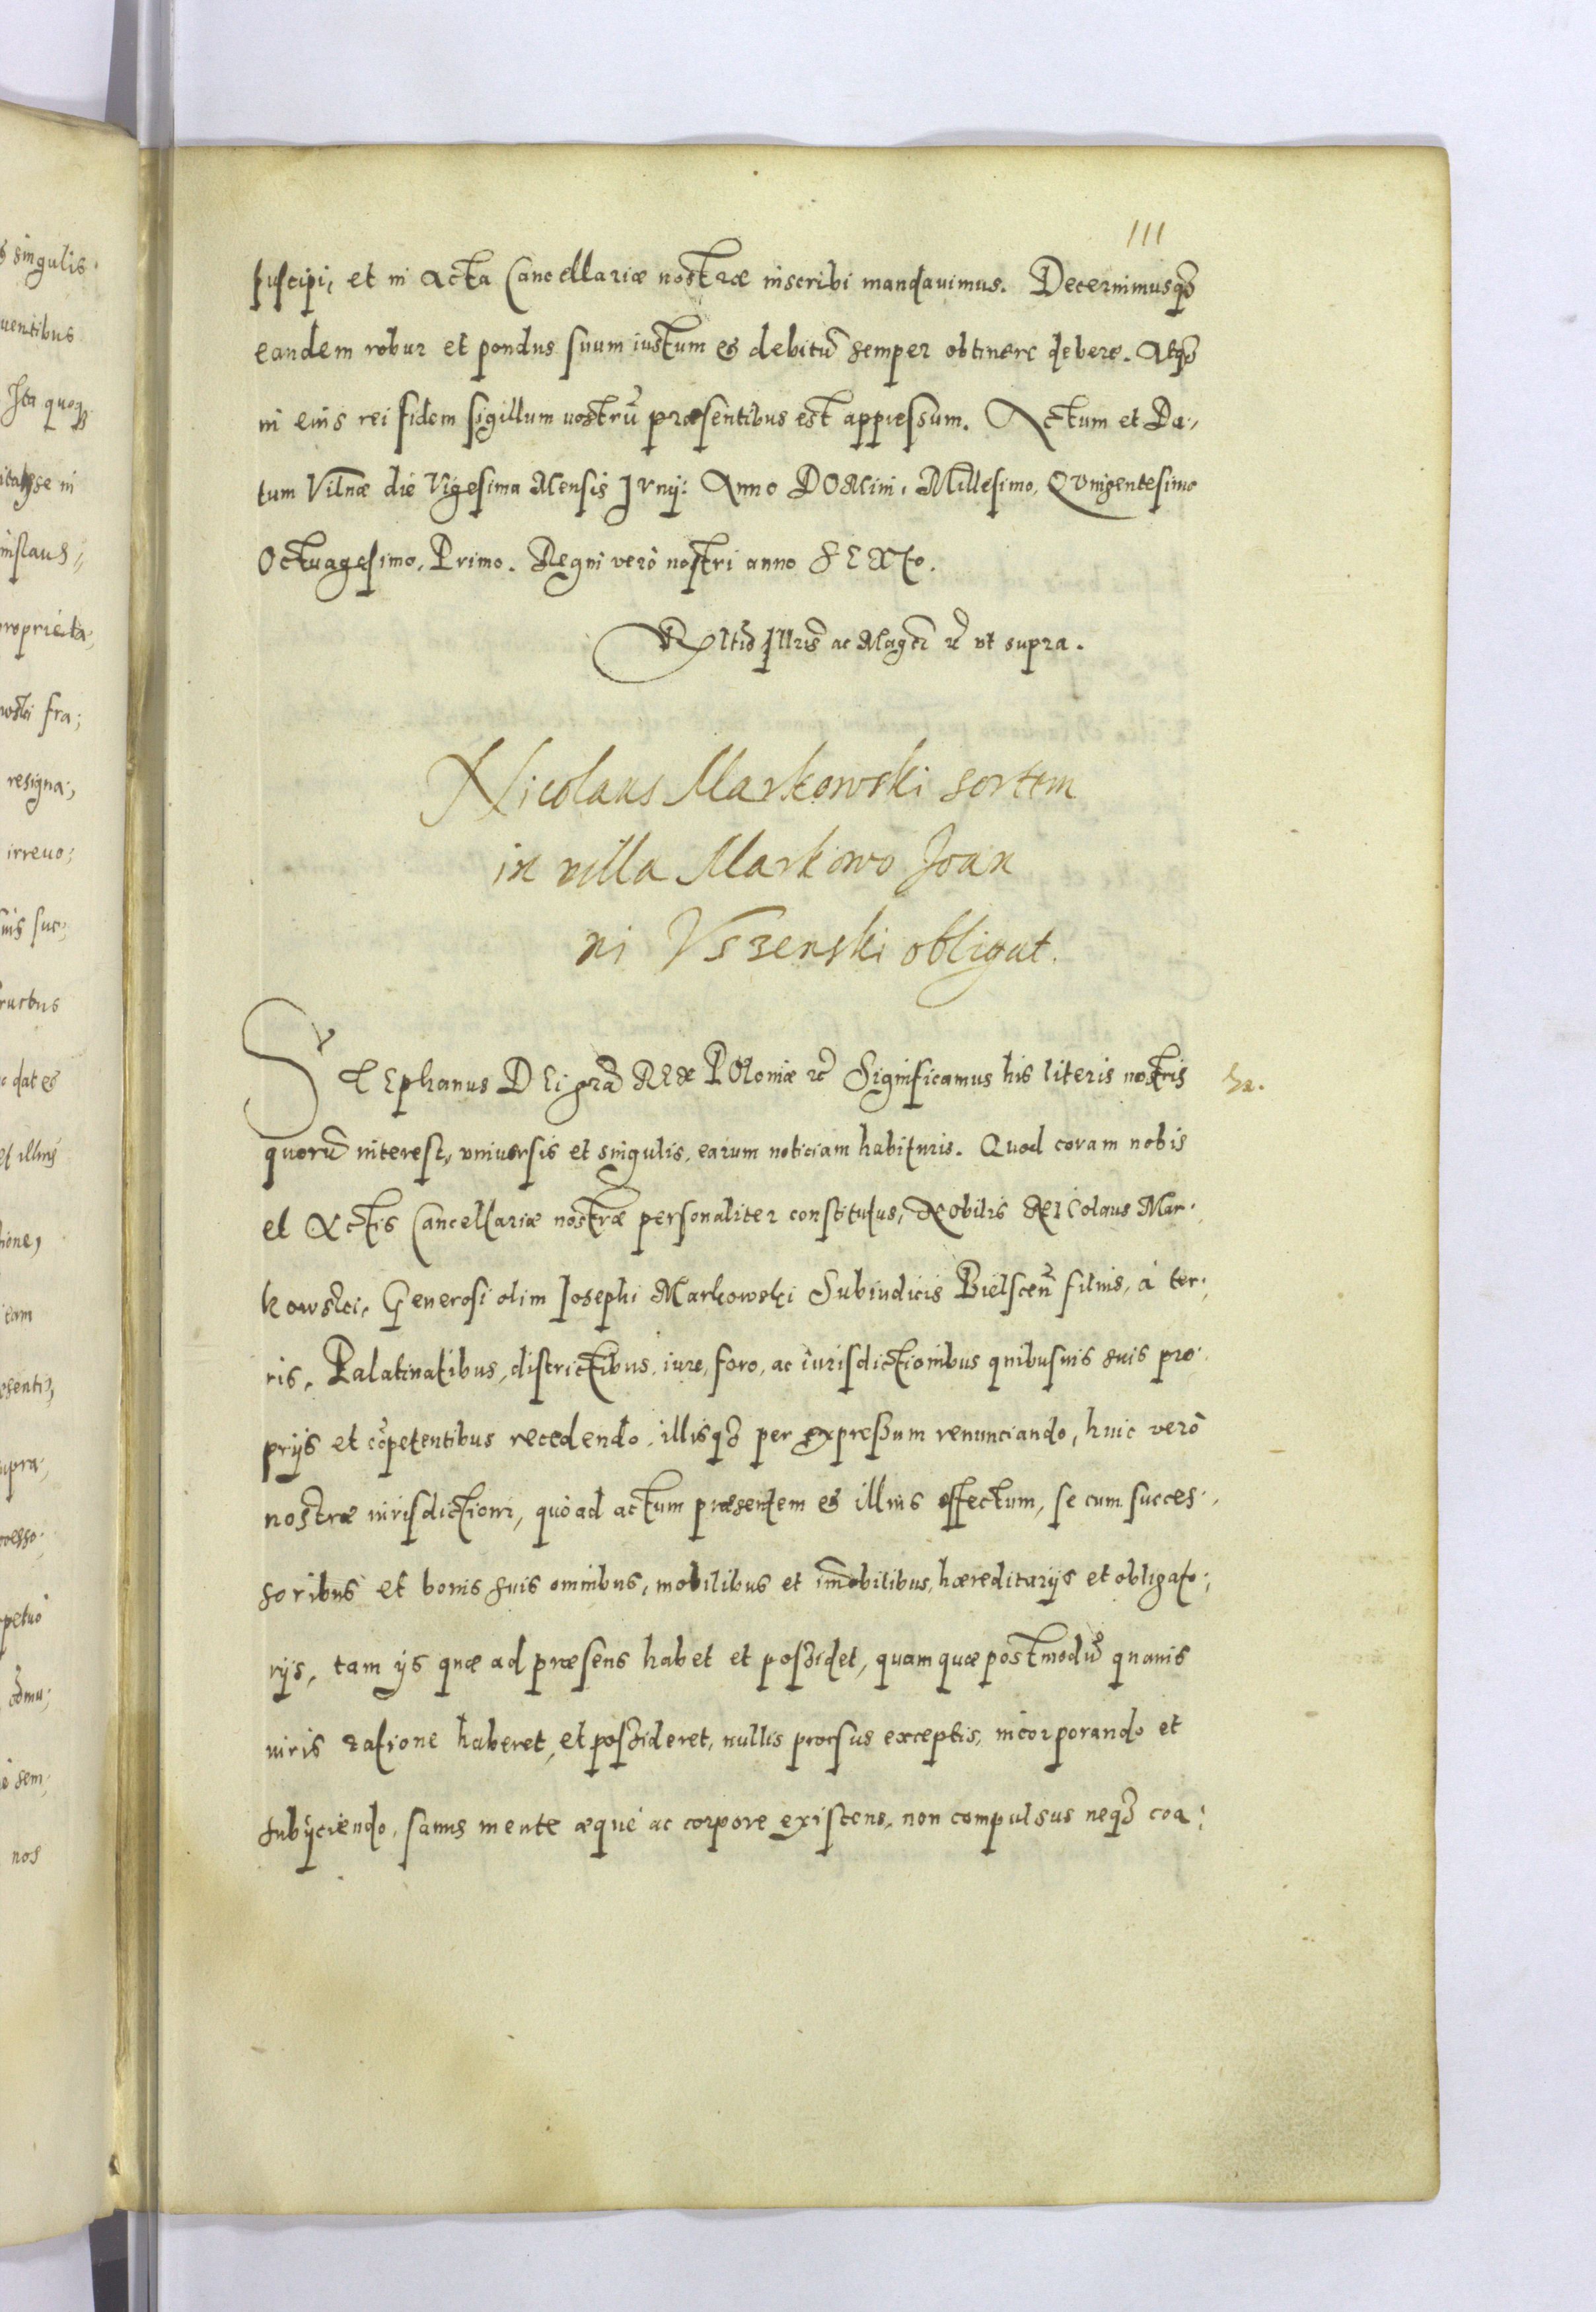 111
suscipi, et in Acta Cancellariæ nostræ inscribi mandauimus. Decernimusqȝ
eandem robur et pondus suum iustum & debitũ semper obtinere debere. Atqȝ
in eius rei fidem sigillum nostrũ præsentibus est appressum. Actum et Da-
tum Vilnæ die Vigesima Mensis Iunij. Anno DOMini, Millesimo, QVingentesimo
Octuagesimo, Primo. Regni verò nostri anno SEXto.
Rltio Illris ac Magci &c vt supra.
Nicolaus Markowski sortem
in villa Markowo Joan
ni Vszenski obligat.
STEphanus DEi grã REx POloniæ &c Significamus his literis nostris
quorũ interest, vniuersis et singulis, earum noticiam habituris. Quod coram nobis
et Actis Cancellariæ nostræ personaliter constitutus, Nobilis NIColaus Mar-
kowski, Generosi olim Josephi Markowski Subiudicis Bielsceñ filius, à ter-
ris, Palatinatibus, districtibus, iure, foro, ac iurisdictionibus quibusuis suis pro-
prijs et cõpetentibus recedendo, illisqȝ per expressum renunciando, huic verò
nostræ iurisdictioni, quòad actum præsentem & illius effectum, se cum succes-
soribus et bonis suis omnibus, mobilibus et im̃obilibus, hæreditarijs et obligato-
rijs, tam ijs quæ ad præsens habet et possidet, quam quæ postmodũ quauis
iuris ratione haberet, et possideret, nullis prorsus exceptis, incorporando et
subijciendo, sanus mente æquè ac corpore existens, non compulsus neqȝ coa-
singulis.
uentibus
Ita quoqȝ
proprieta-
fra-
resigna-
irreuo-
suis suc-
ructus
dat &
et illius